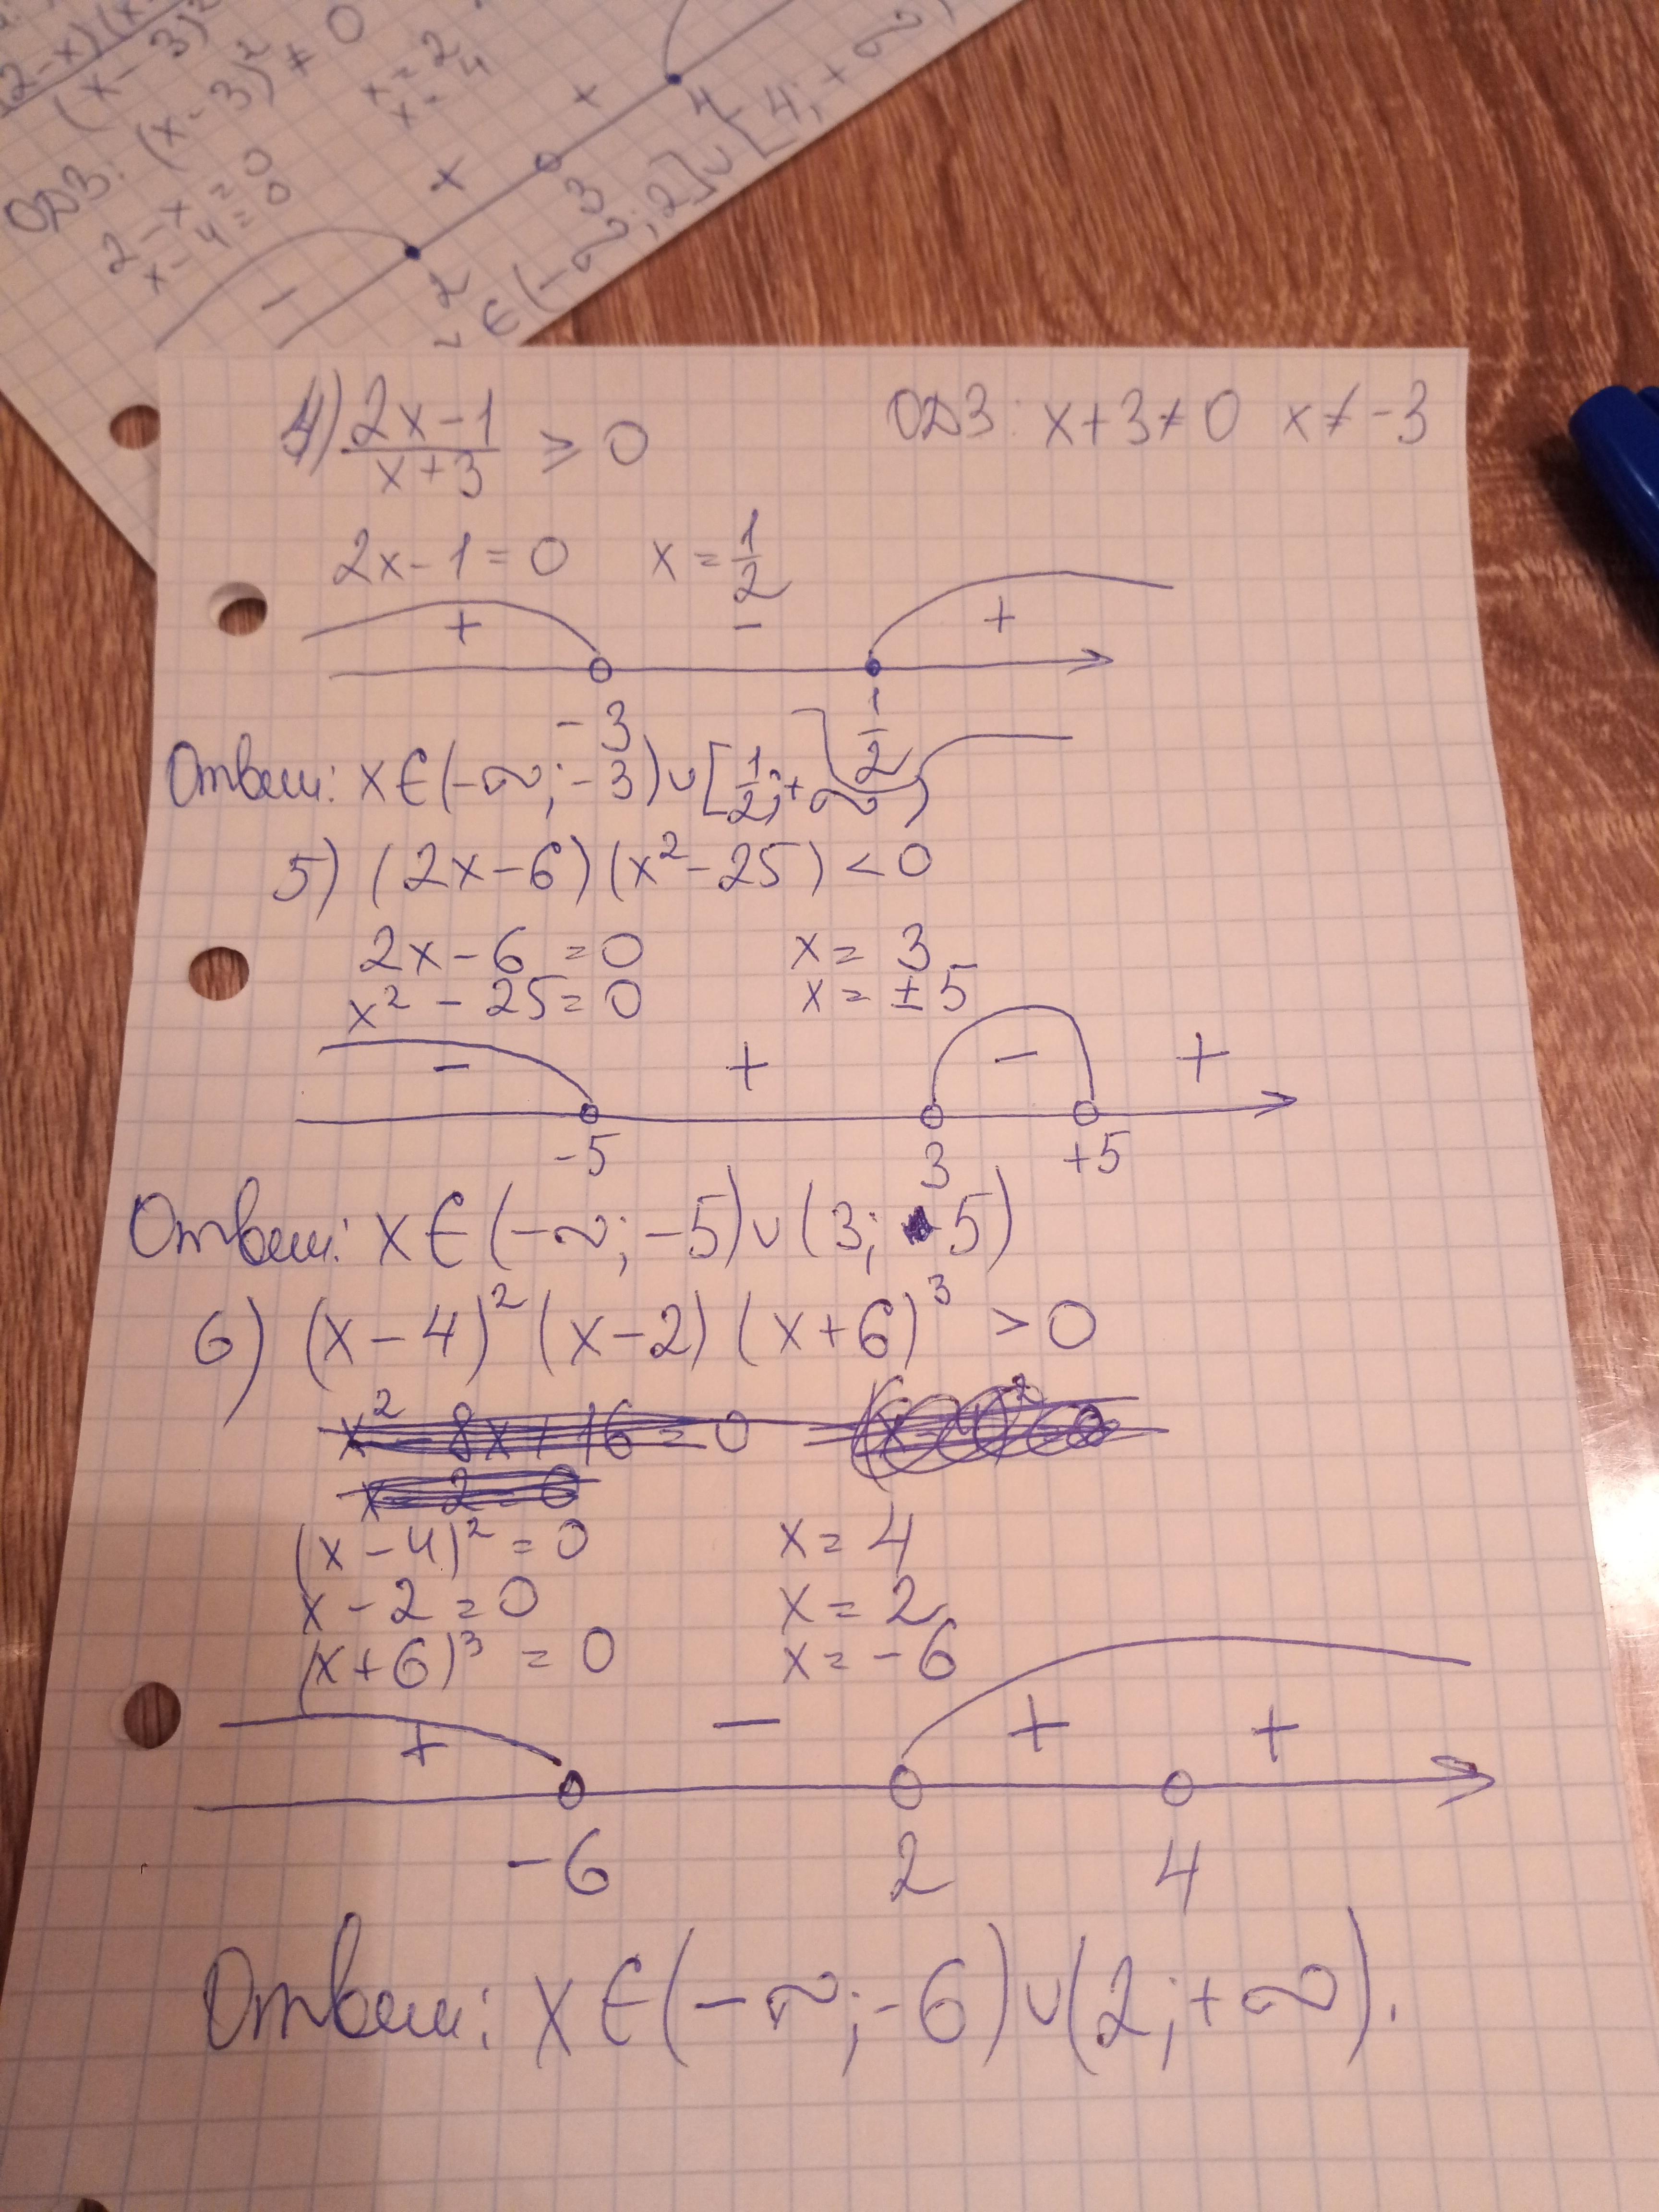 (x-3)²
ОДЗ: (x-3)² ≠ 0
2-x=0 x=2
x-4=0 x=4
- + +
2 3 4
∈(-∞;2]∪[4;+∞)
4) (2x-1)/(x+3) ≥ 0 ОДЗ: x+3≠0 x≠-3
2x-1=0 x=1/2
+ - +
-3 1/2
Ответ: x∈(-∞;-3)∪[1/2;+∞)
5) (2x-6)(x²-25)<0
2x-6=0 x=3
x²-25=0 x=±5
- + - +
-5 3 +5
Ответ: x∈(-∞;-5)∪(3;5)
6) (x-4)²(x-2)(x+6)³>0
x²-8x+16=0
x-2=0
(x-4)²=0 x=4
x-2=0 x=2
(x+6)³=0 x=-6
+ - + +
-6 2 4
Ответ: x∈(-∞;-6)∪(2;+∞).